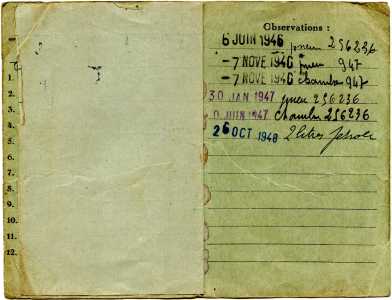 1.
2.
3.
4.
5.
6.
7.
8.
9.
10.
11.
12.
Observations :
6 JUIN 1946 pneu 256236
-7 NOVE 1946 pneu 947
-7 NOVE 1946 chambre 947
30 JAN 1947 pneu 256236
JUIN 1947 chambre 256236
26 OCT 1948 2 litres pétrole